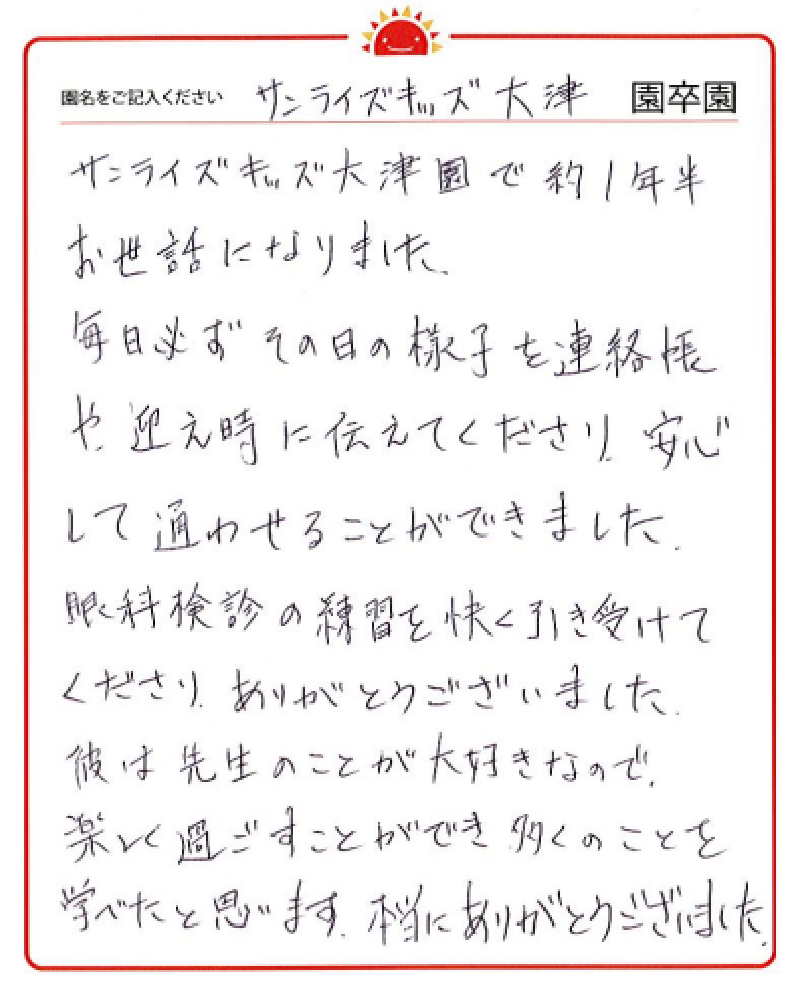 園名をご記入ください サンライズキッズ大津 園卒園
サンライズキッズ大津園で約1年半
お世話になりました。
毎日必ずその日の様子を連絡帳
や、迎え時に伝えてくださり、安心
して通わせることができました。
眼科検診の練習を快く引き受けて
くださり、ありがとうございました。
彼は先生のことが大好きなので、
楽しく過ごすことができ多くのことを
学べたと思います。本当にありがとうございました。